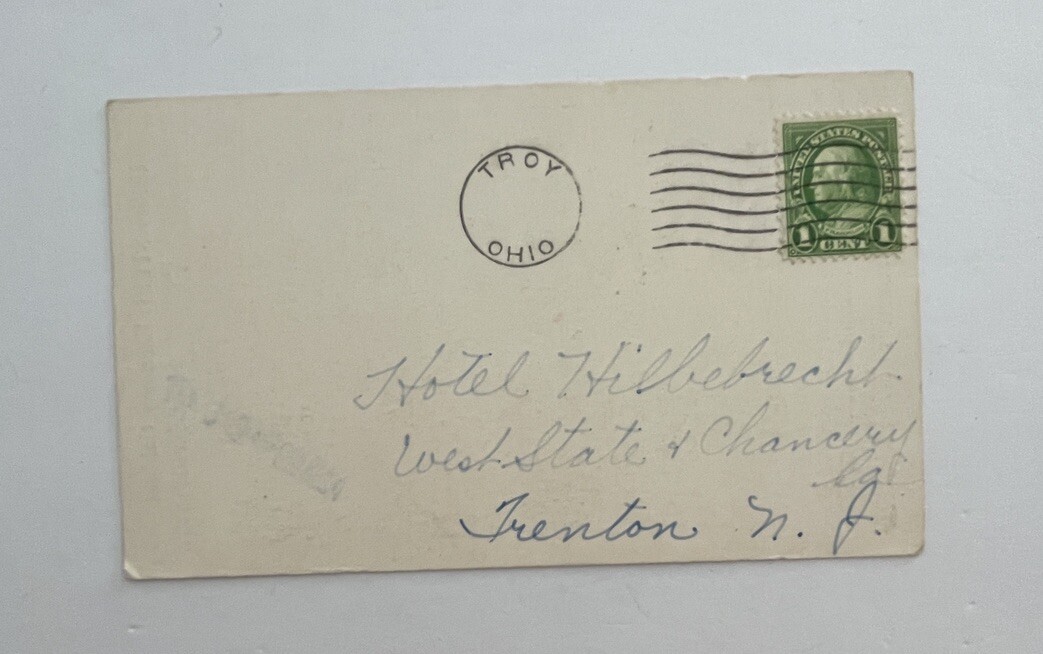 TROY
OHIO
UNITED STATES POSTAGE
1 CENT 1
Hotel Hilbebrecht
West State & Chancery
Trenton N. J.